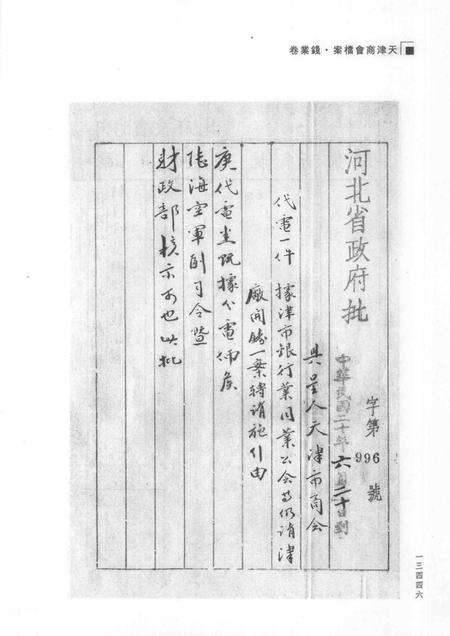 天津商會檔案·錢業卷
河北省政府批
字第996號
中華民國二十年六月二十日到
具呈人天津市商會
代電一件 據津市銀行業同業公會等仍請津
廠開鑄一案轉請施行由
庚代電悉既據分電偽候
陸海空軍副司令暨
財政部核示可也此批
一三四四六